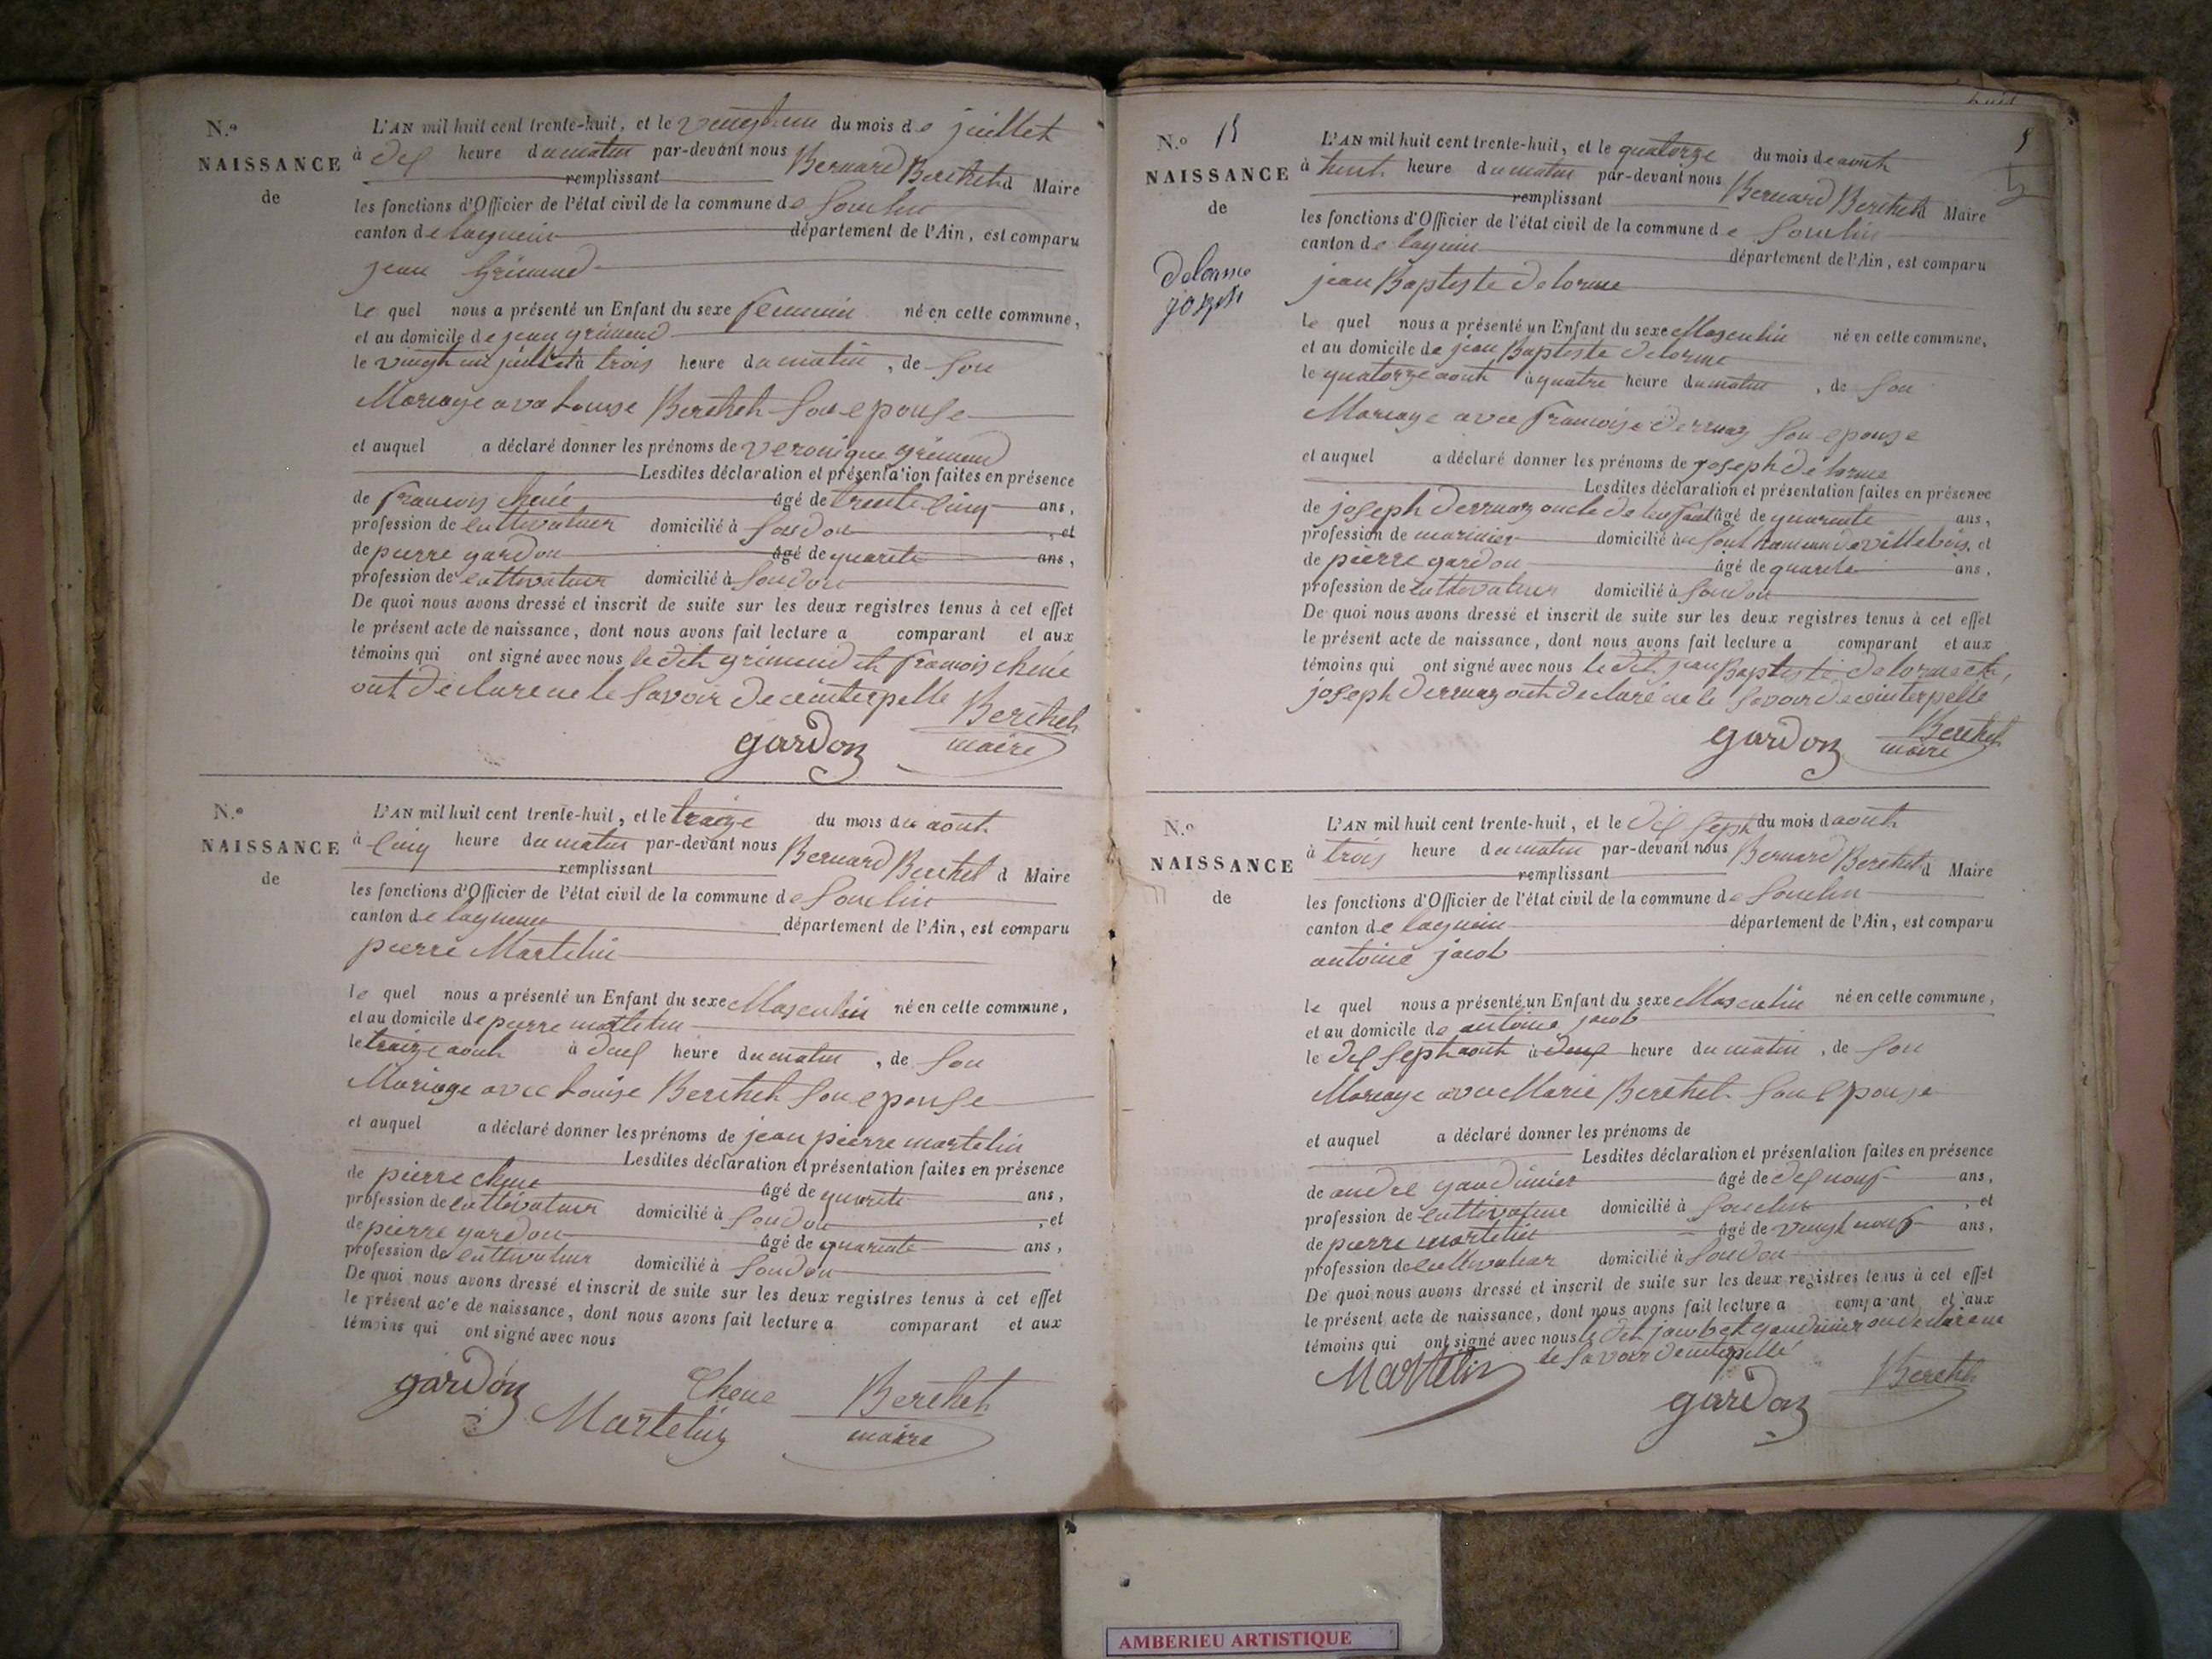 N.o
NAISSANCE
de
L'AN mil huit cent trente-huit, et le vingh un du mois de juillet
à dex heure du matin par-devant nous Bernard Berthet d Maire
remplissant
les fonctions d'Officier de l'état civil de la commune de Souclin
canton de lagneiu département de l'Ain, est comparu
jean Grimand
Le quel nous a présenté un Enfant du sexe feminin né en cette commune,
et au domicile de jean grimand
le vingh un juillet à trois heure du matin, de son
Mariage avec Louise Berthet son epouse
et auquel a déclaré donner les prénoms de veronique grimand
Lesdites déclaration et présentation faites en présence
de francois chene âgé de trente cinq ans,
profession de cultivateur domicilié à Soudon, et
de pierre gardon âgé de quarente ans,
profession de cultivateur domicilié à Soudon
De quoi nous avons dressé et inscrit de suite sur les deux registres tenus à cet effet
le présent acte de naissance, dont nous avons fait lecture a comparant et aux
témoins qui ont signé avec nous le dit grimand et francois chene
ont declare ne le savoir de ce interpelle
Berthet
gardon maire
N.o
NAISSANCE
de
L'AN mil huit cent trente-huit, et le traize du mois de aout
à cinq heure du matin par-devant nous Bernard Berthet d Maire
remplissant
les fonctions d'Officier de l'état civil de la commune de Souclin
canton de lagneiu département de l'Ain, est comparu
pierre Martelin
le quel nous a présenté un Enfant du sexe Masculin né en cette commune,
et au domicile de pierre martelin
le traize aout à deux heure du matin, de son
Mariage avec Louise Berthet son epouse
et auquel a déclaré donner les prénoms de jean pierre martelin
Lesdites déclaration et présentation faites en présence
de pierre chene âgé de quarente ans,
profession de cultivateur domicilié à Soudon, et
de pierre gardon âgé de quarente ans,
profession de cultivateur domicilié à Soudon
De quoi nous avons dressé et inscrit de suite sur les deux registres tenus à cet effet
le présent acte de naissance, dont nous avons fait lecture a comparant et aux
témoins qui ont signé avec nous
gardon Chene Berthet
Martelin maire
huit
N.o 15
NAISSANCE
de
delorme
joseph
L'AN mil huit cent trente-huit, et le quatorze du mois de aout
à heure du matin par-devant nous Bernard Berthet d Maire
remplissant
les fonctions d'Officier de l'état civil de la commune de Souclin
canton de lagneiu département de l'Ain, est comparu
jean Baptiste delorme
le quel nous a présenté un Enfant du sexe Masculin né en cette commune,
et au domicile de jean Baptiste delorme
le quatorze aout à quatre heure du matin, de son
Mariage avec francoise derruaz son epouse
et auquel a déclaré donner les prénoms de joseph delorme
Lesdites déclaration et présentation faites en présence
de joseph derruaz oncle de lenfant âgé de quarente ans,
profession de marinier domicilié au hameau de villebois, et
de pierre gardon âgé de quarente ans,
profession de cultivateur domicilié à Soudon
De quoi nous avons dressé et inscrit de suite sur les deux registres tenus à cet effet
le présent acte de naissance, dont nous avons fait lecture a comparant et aux
témoins qui ont signé avec nous le dit jean Baptiste delorme et
joseph derruaz ont declaré ne le savoir de ce interpellé
Berthet
gardon maire
N.o
NAISSANCE
de
L'AN mil huit cent trente-huit, et le dix seph du mois d aout
à trois heure du matin par-devant nous Bernard Berthet d Maire
remplissant
les fonctions d'Officier de l'état civil de la commune de Souclin
canton de lagneiu département de l'Ain, est comparu
antoine jacob
le quel nous a présenté un Enfant du sexe Masculin né en cette commune,
et au domicile de antoine jacob
le dix seph aout à deux heure du matin, de son
Mariage avec Marie Berthet son epouse
et auquel a déclaré donner les prénoms de
Lesdites déclaration et présentation faites en présence
de andre gaudinier âgé de dix nouf ans,
profession de cultivateur domicilié à Souclin, et
de pierre martelin âgé de vingh nouf ans,
profession de cultivateur domicilié à Soudon
De quoi nous avons dressé et inscrit de suite sur les deux registres tenus à cet effet
le présent acte de naissance, dont nous avons fait lecture a comparant et aux
témoins qui ont signé avec nous le dit jacob et gaudinier on declare ne
le savoir de ce interpellé
Martelin gardon Berthet
AMBERIEU ARTISTIQUE